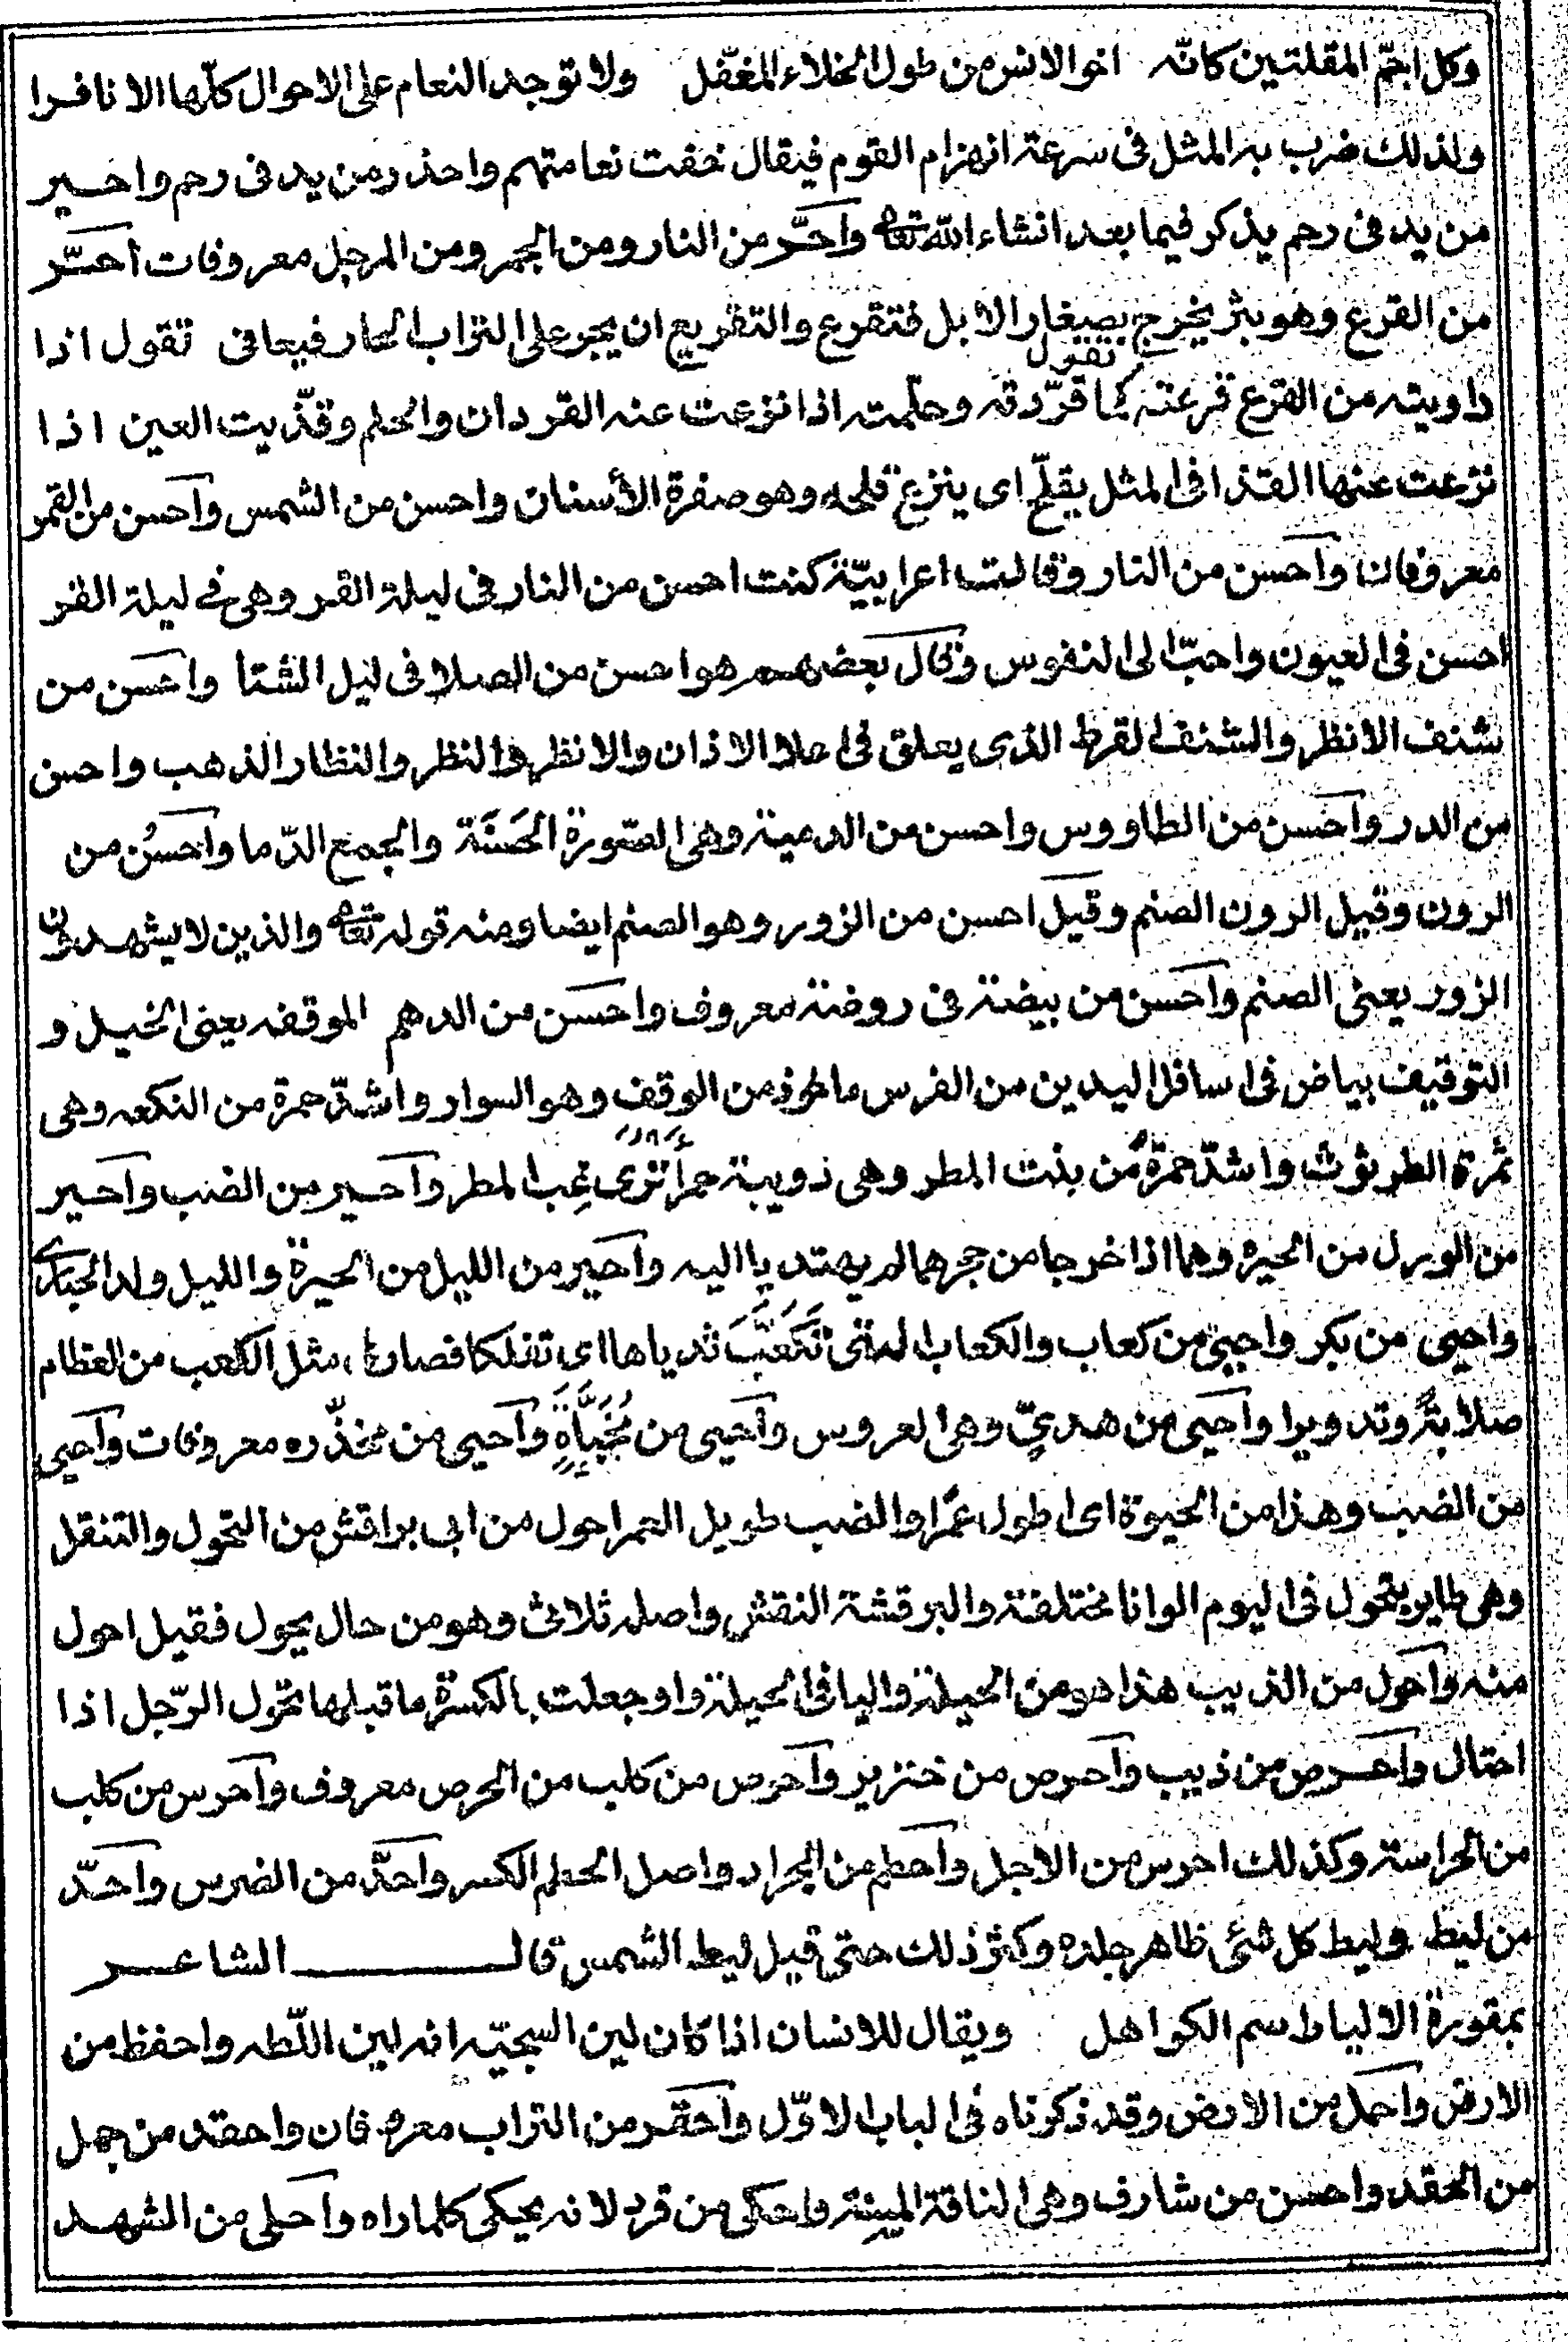 وكل اجمّ المقلتين كانّه اخو الانس من طول الخلاء المغفّل ولا توجد النعام على الاحوال كلّها الا نافرا
ولذلك ضرب به المثل فى سرعة انهزام القوم فيقال خفت نعامتهم واحذر من يد فى رحم واحير
من يد فى رحم يذكر فيما بعد انشاء الله تعالى وآحرّ من النار ومن الجمر ومن المرجل معروفات أحرّ
من القرع وهو بثر يخرج بصغار الابل فتقرع والتقريع ان يجر على التراب الحار فيعافى تقول اذا
داويته من القرع قرعته كما تقول قرّدته وحلّمته اذا نزعت عنه القردان والحلم وقذّيت العين اذا
نزعت عنها القذا فى المثل يقلّح اى ينزع قلحه وهو صفرة الأسنان واحسن من الشمس وآحسن من القمر
معروفان وآحسن من النار وقالت اعرابيّة كنت احسن من النار فى ليلة القر وهى فى ليلة القر
احسن فى العيون واحبّ الى النفوس وقال بعضهم هو احسن من الصلا فى ليل الشتا واحسن من
شنف الانظر والشنف القرط الذى يعلق فى اعلا الاذان والانظر والنظر والنظار الذهب واحسن
من الدر وآحسن من الطاووس واحسن من الدمية وهى الصّورة الحَسَنَة والجمع الدّما وآحسنُ من
الرون وقيل الرون الصنم وقيل احسن من الزور وهو الصنم ايضا ومنه قوله تعالى والذين لا يشهدون
الزور يعنى الصنم وآحسن من بيضة فى روضة معروف واحسن من الدهم الموقفه يعنى الخيل و
التوقيف بياض فى اسافل اليدين من الفرس ماخوذ من الوقف وهو السوار واشدّ حمرة من النكعه وهى
ثمرة الطرثوث واشدّ حمرةً من بنت المطر وهى ذويبة حمرأ ترى غِب المطر وآحير من الضب وآحير
من الورل من الحيره وهما اذا خرجا من جحرهما لم يهتديا اليه وآحير من الليل من الحيرة والليل ولد الحبارى
واحيى من بكر واحيى من كعاب والكعاب التى تَكَعَّبَ ثدياها اى تفلكا فصارا مثل الكعب من العظام
صلابةً وتدويرا وآحيى من هديّ وهى العروس وآحيى من مُخَبَّأةٍ وآحيى من مخدّره معروفات وآحيى
من الضب وهذا من الحيوة اى اطول عمًرا والضب طويل العمر احول من ابى براقش من التحول والتنقل
وهى طاير يتحول فى اليوم الوانا مختلفة والبرقشة النقش واصله ثلاثى وهو من حال يحول فقيل احول
منه وآحول من الذيب هذا هو من الحيلة واليا فى الحيلة واو جعلت بالكسرة ما قبلها تحول الرّجل اذا
احتال وآحرص من ذيب وآحرص من خنزير وآحرص من كلب من الحرص معروف وآحرس من كلب
من الحراسة وكذلك احرس من الاجل وآحطم من الجراد واصل الحطم الكسر وآحدّ من الضرس وآحدّ
من ليط وليط كل شئى ظاهر جلده وكثر ذلك حتى قيل ليط الشمس قال الشاعر
بمقورة الالياط سم الكواهل ويقال للانسان اذا كان لين السجيّه انه لين اللّطه واحفظ من
الارض وآحمل من الارض وقد ذكرناه فى الباب الاوّل وآحقر من التراب معروفان واحقد من جمل
من الحقد واحسن من شارف وهى الناقة المسنة واحكى من قرد لانه يحكى كلما راه وآحلى من الشهد